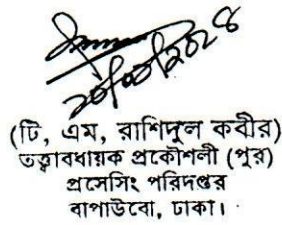 (টি, এম, রাশিদুল কবীর)
তত্ত্বাবধায়ক প্রকৌশলী (পুর)
প্রসেসিং পরিদপ্তর
বাপাউবো, ঢাকা।